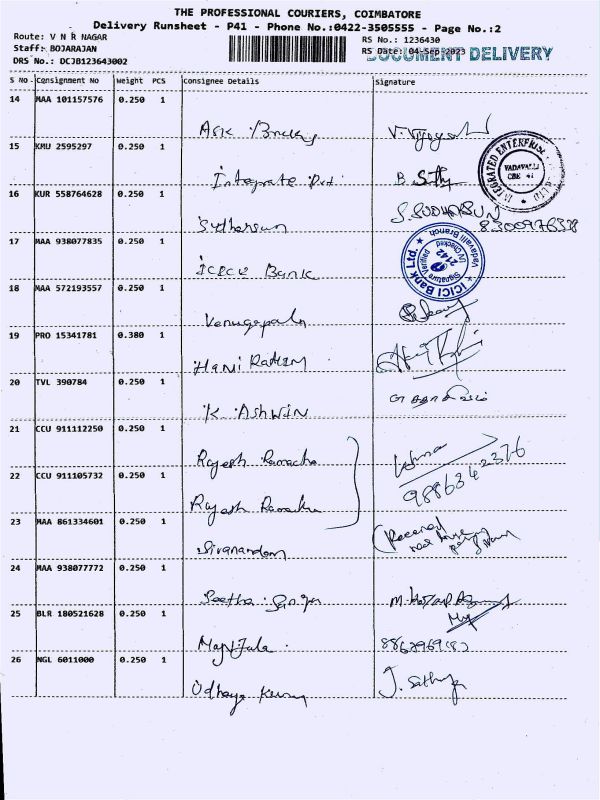 THE PROFESSIONAL COURIERS, COIMBATORE
Delivery Runsheet - P41 - Phone No.:0422-3505555 - Page No.:2
Route: V N R NAGAR
RS No.: 1236430
Staff: BOJARAJAN
RS Date: 04-Sep-2023
DOCUMENT DELIVERY
DRS No.: DCJB123643002
S No Consignment No Weight PCS Consignee Details Signature
14 MAA 101157576 0.250 1
15 KMU 2595297 0.250 1
Integrate Pvt
INTEGRATED ENTERPRISE
VADAVALLI
CBE 41
16 KUR 558764628 0.250 1
Sudharsun S. SUDHARSUN
8300976328
17 MAA 938077835 0.250 1
ICICI Bank
ICICI Bank Ltd.
Vadavalli Branch
Signature Verified
UV Checked
2142
18 MAA 572193557 0.250 1
Venugopaln
19 PRO 15341781 0.380 1
Hami Rathim
20 TVL 390784 0.250 1
K. Ashwin
21 CCU 911112250 0.250 1
Rajesh Ramacha
9886342376
22 CCU 911105732 0.250 1
Rajesh Ramacha
23 MAA 861334601 0.250 1
Sivanandam
Received
24 MAA 938077772 0.250 1
Seetha
25 BLR 180521628 0.250 1
Manjula
26 NGL 6011000 0.250 1
Udhaya Kumar J. Sathya